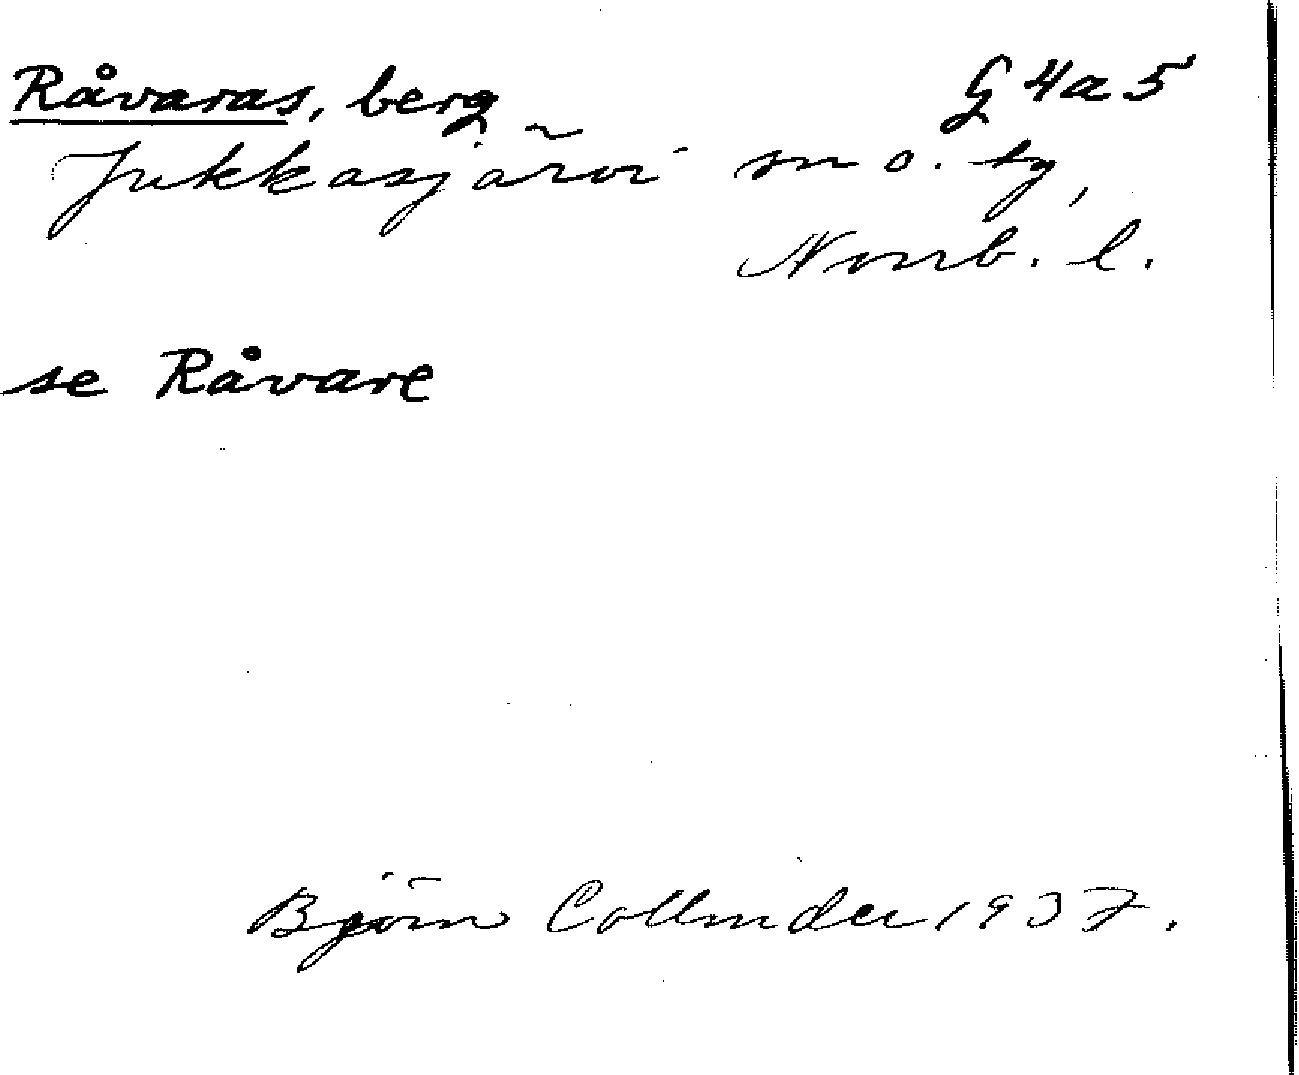 Råvaras, berg G4a5
Jukkasjärvi sn o. tg,
Norrb. l.
se Råvare
Björn Collinder 1937.